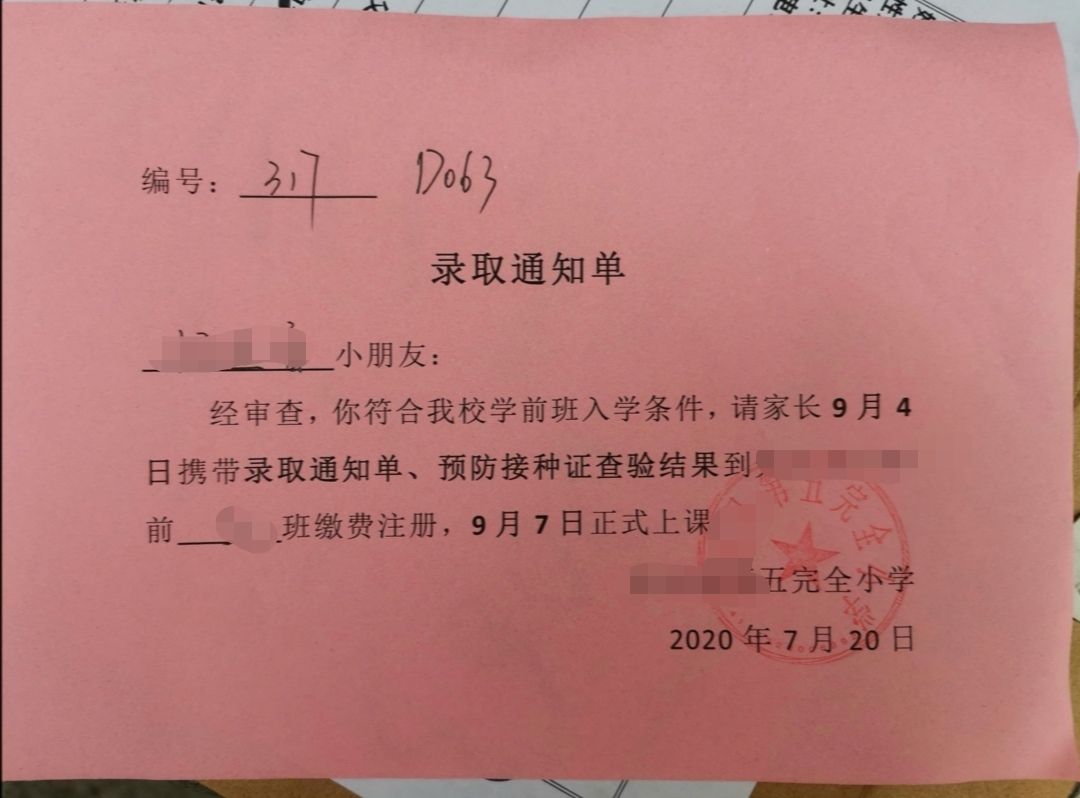 编号：317 D063
录取通知单
小朋友：
经审查，你符合我校学前班入学条件，请家长9月4
日携带录取通知单、预防接种证查验结果到
前 班缴费注册，9月7日正式上课
五完全小学
2020年7月20日
第五完全小学